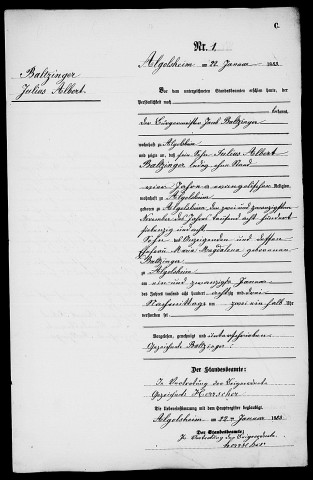 C.
Nr. 1
Algolsheim am 22. Januar 1883.
Baltzinger
Julius Albert.
Vor dem unterzeichneten Standesbeamten erschien heute, der
Persönlichkeit nach
bekannt,
der Bürgermeister Jacob Baltzinger
wohnhaft zu Algolsheim
und zeigte an, daß sein Sohn Julius Albert
Baltzinger ledig ohne Stand
vier Jahre alt evangelischer Religion,
wohnhaft zu Algolsheim
geboren zu Algolsheim, den zwei und zwanzigsten
November des Jahres tausend acht hundert
siebenzig und acht
Sohn des Anzeigenden und dessen
Ehefrau Maria Magdalena geborenen
Baltzinger
zu Algolsheim
am ein und zwanzigsten Januar
des Jahres tausend acht hundert achtzig und drei
Nachmittags um zwei ein halb Uhr
verstorben sei
Vorgelesen, genehmigt und unterschrieben
Gezeichnet Baltzinger
Der Standesbeamte:
In Vertretung der Beigeordnete
Gezeichnet Herrscher
Die Uebereinstimmung mit dem Hauptregister beglaubigt.
Algolsheim am 22ten Januar 1883
Der Standesbeamte:
In Vertretung der Beigeordnete
Herrscher